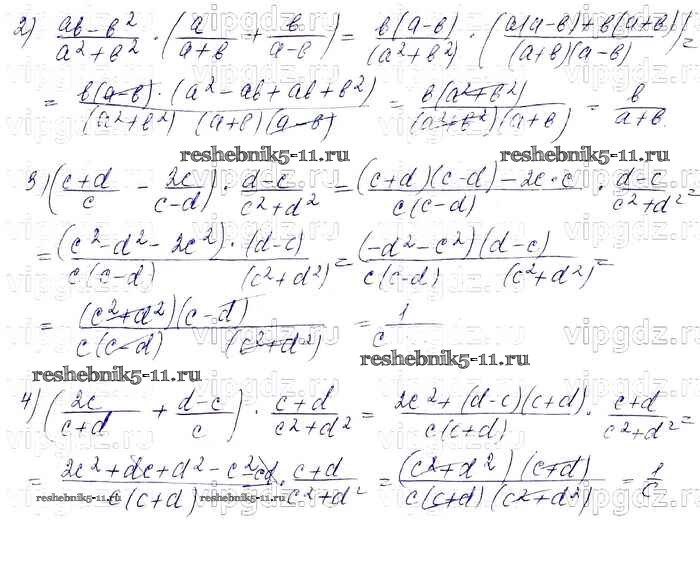 2) (ab-b²)/(a²+b²) · (a/(a+b) + b/(a-b)) = b(a-b)/(a²+b²) · (a(a-b)+b(a+b))/((a+b)(a-b)) =
= b(a-b)·(a²-ab+ab+b²)/((a²+b²)(a+b)(a-b)) = b(a²+b²)/((a²+b²)(a+b)) = b/(a+b).
reshebnik5-11.ru reshebnik5-11.ru
3) ((c+d)/c - 2c/(c-d)) · (d-c)/(c²+d²) = ((c+d)(c-d)-2c·c)/(c(c-d)) · (d-c)/(c²+d²) =
= (c²-d²-2c²)·(d-c)/(c(c-d)(c²+d²)) = (-d²-c²)(d-c)/(c(c-d)(c²+d²)) =
= (c²+d²)(c-d)/(c(c-d)(c²+d²)) = 1/c
reshebnik5-11.ru reshebnik5-11.ru
4) (2c/(c+d) + (d-c)/c) · (c+d)/(c²+d²) = (2c²+(d-c)(c+d))/(c(c+d)) · (c+d)/(c²+d²) =
= (2c²+dc+d²-c²-cd)/(c(c+d)) · (c+d)/(c²+d²) = (c²+d²)(c+d)/(c(c+d)(c²+d²)) = 1/c
reshebnik5-11.ru reshebnik5-11.ru